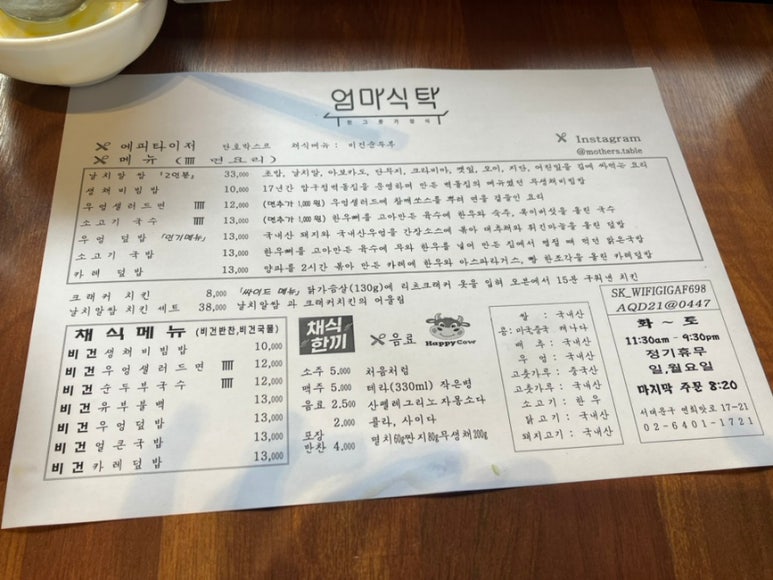 엄마식탁
한그릇가정식
에피타이저 단호박스프 채식메뉴 : 비건순두부
메뉴 (면요리)
Instagram
@mothers.table
날치알쌈 「2인분」 33,000 초밥, 날치알, 아보카도, 단무지, 크라미아, 깻잎, 오이, 지단, 어린잎을 김에 싸먹는 요리
생채비빔밥 10,000 17년간 압구정떡볶집을 운영하며 만든 떡볶집의 메뉴였던 무생채비빔밥
우엉샐러드면 12,000 (면추가 1,000원) 우엉샐러드에 참깨쏘스를 뿌려 면을 곁들인 요리
소고기 국수 13,000 (면추가 1,000원) 한우뼈를 고아만든 육수에 한우와 숙주, 목이버섯을 올린 국수
우엉 덮밥 「인기메뉴」 13,000 국내산 돼지와 국내산우엉을 간장소스에 볶아 대추채와 튀긴마늘을 올린 덮밥
소고기 국밥 13,000 한우뼈를 고아만든 육수에 무와 한우를 넣어 만든 집에서 명절 때 먹던 맑은국밥
카레 덮밥 13,000 양파를 2시간 볶아 만든 카레에 한우와 아스파라거스, 빵 한조각을 올린 카레덮밥
크래커 치킨 8,000 「싸이드 메뉴」 닭가슴살(130g)에 리츠크래커 옷을 입혀 오븐에서 15분 구워낸 치킨
날치알쌈 치킨 세트 38,000 날치알쌈 과 크래커치킨의 어울림
채식메뉴 (비건반찬,비건국물)
비건 생채비빔밥 10,000
비건 우엉샐러드면 12,000
비건 순두부국수 12,000
비건 유부볼백 13,000
비건 우엉덮밥 13,000
비건 얼큰국밥 13,000
비건 카레덮밥 13,000
채식
한끼
음료
HappyCow
소주 5.000 처음처럼
맥주 5.000 테라(330ml) 작은병
음료 2.500 산펠레그리노 자몽소다
2.000 콜라, 사이다
포장
반찬 4.000 멸치60g짠지80g무생채200g
쌀 : 국내산
콩:미국중국 캐나다
배추 : 국내산
우엉 : 국내산
고춧가루 : 중국산
고춧가루 : 국내산
소고기 : 한우
닭고기 : 국내산
돼지고기 : 국내산
SK_WIFIGIGAF698
AQD21@0447
화 ~ 토
11:30am - 9:30pm
정기휴무
일,월요일
마지막 주문 8:20
서대문구 연희맛로 17-21
02-6401-1721